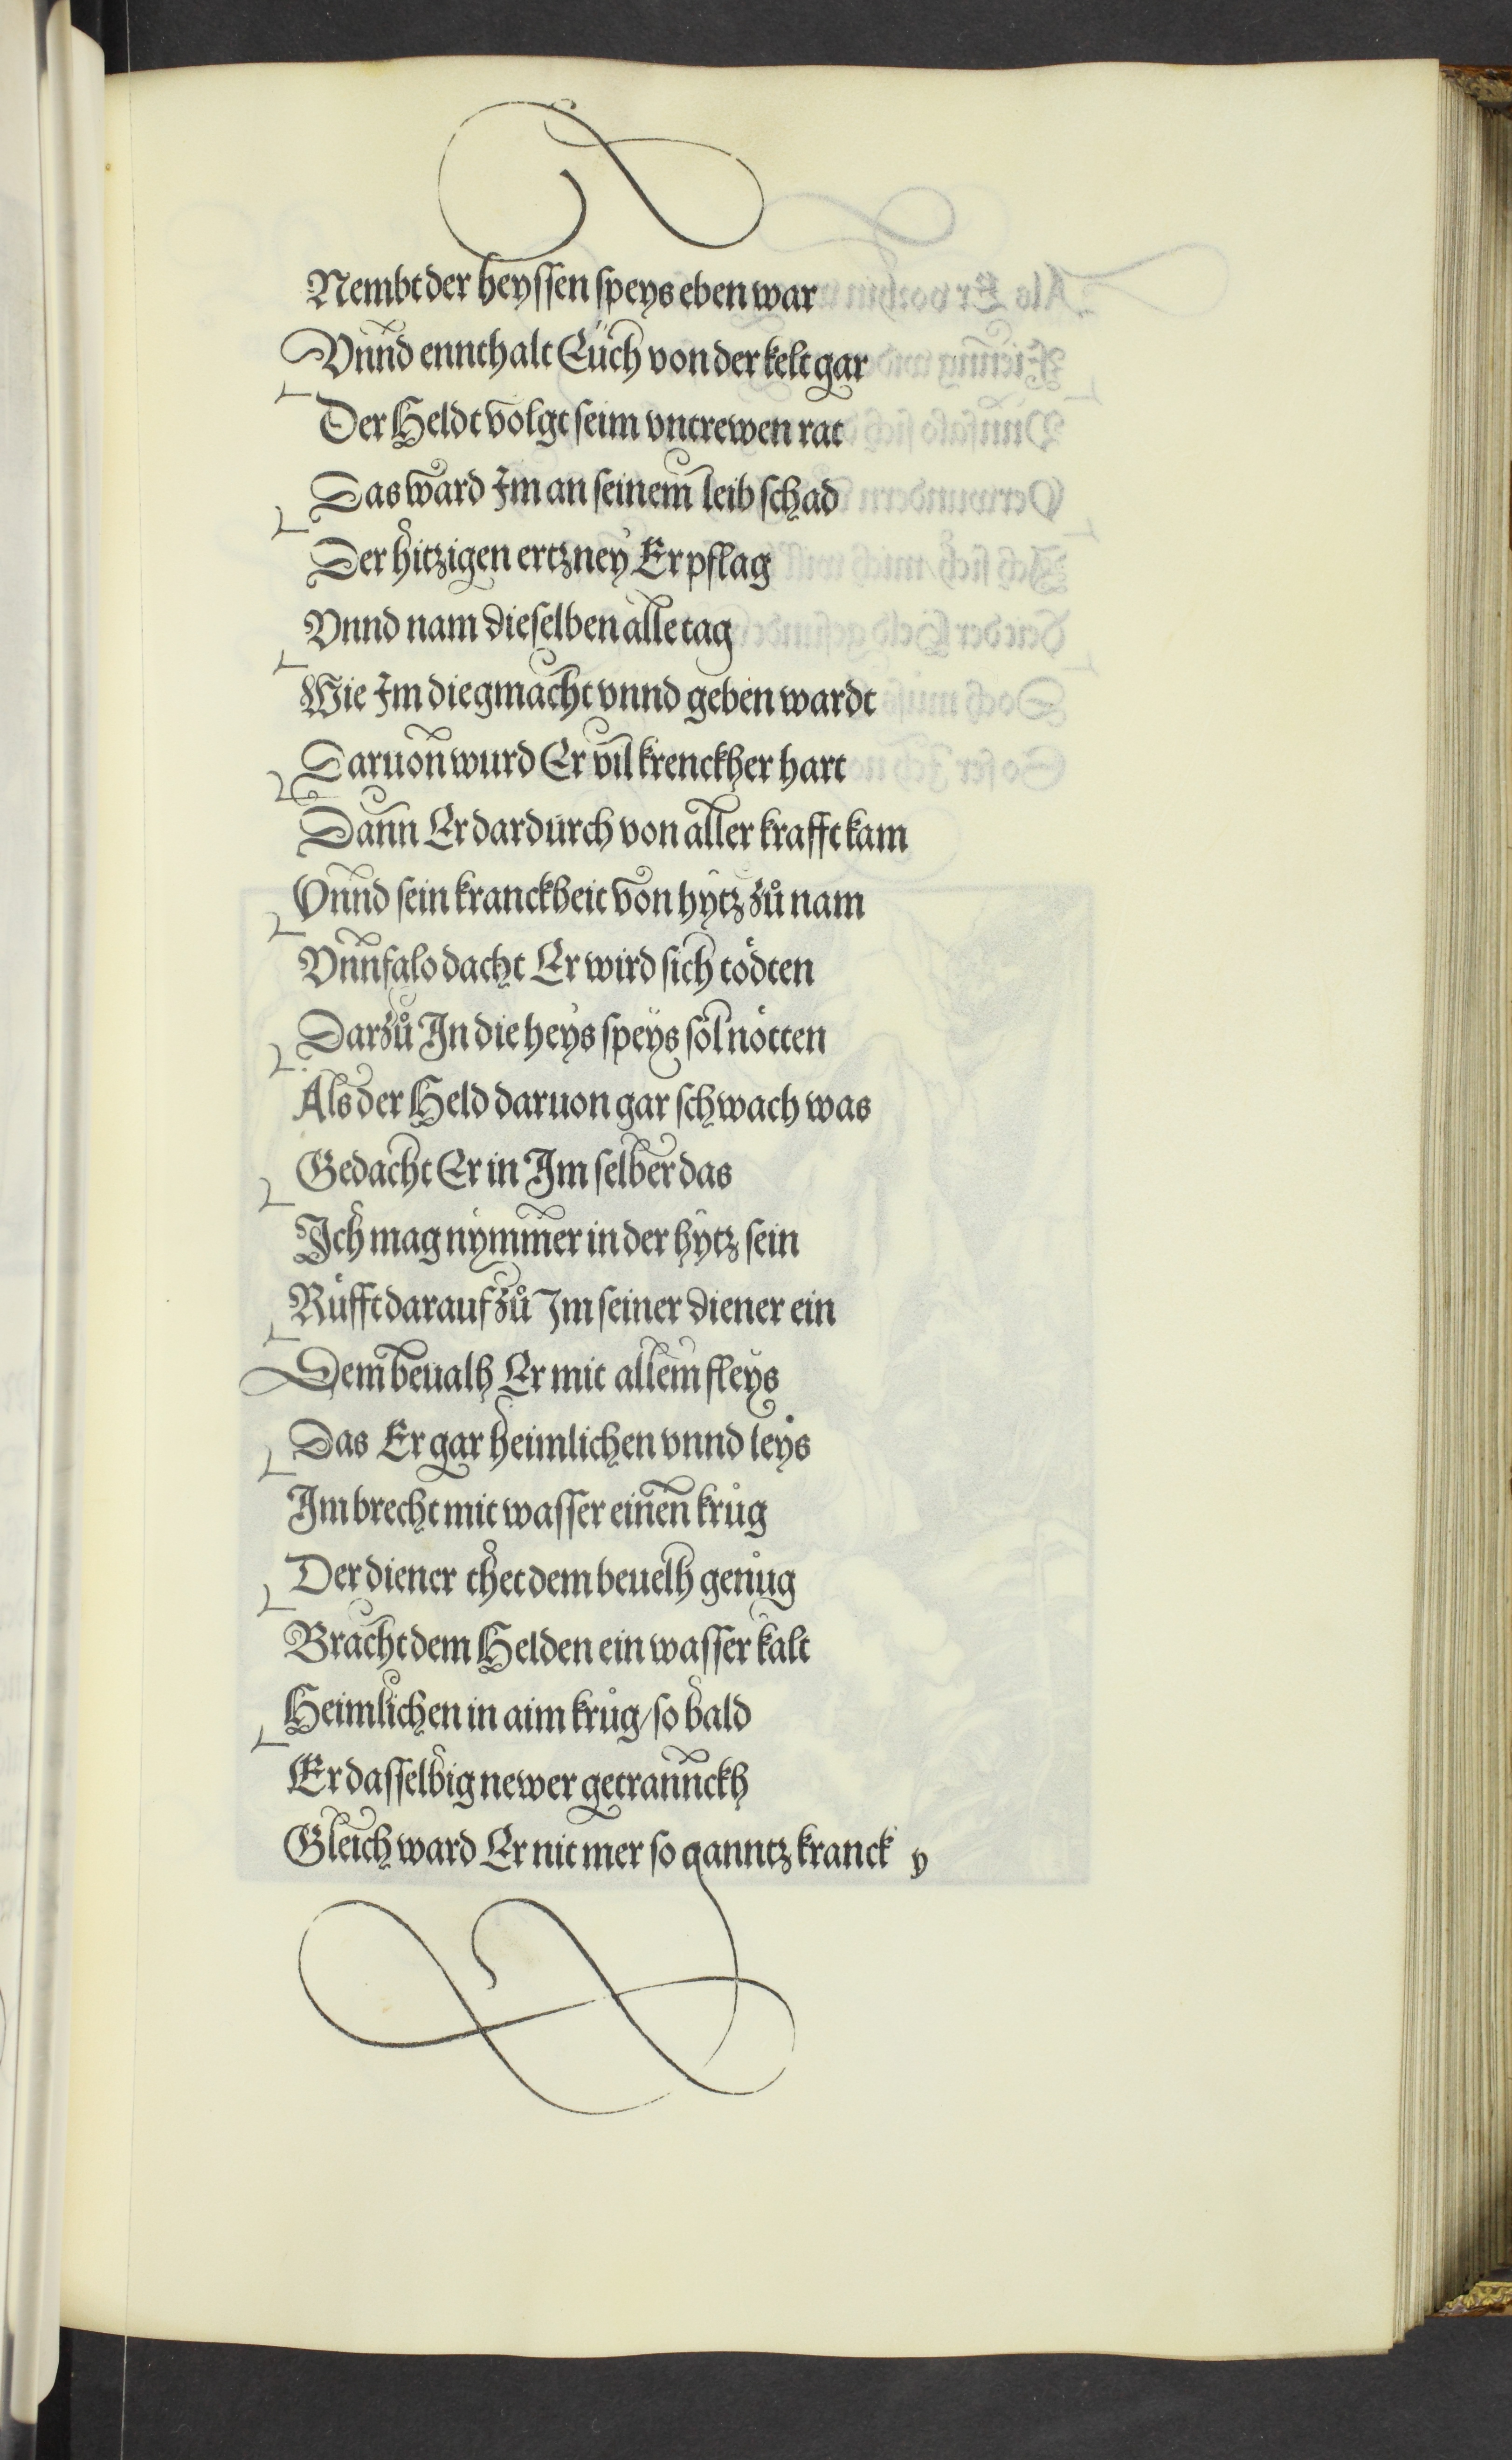 Nembt der heyssen speys eben war
Vnnd ennthalt Euch von der kelt gar
Der Heldt volgt seim vntrewen rat
Das ward Im an seinem leib schad
Der hitzigen ertzney Er pflag
Vnnd nam dieselben alle tag
Wie Im die gmacht vnnd geben wardt
Daruon wurd Er vil krenckher hart
Dann Er dardurch von aller krafft kam
Vnnd sein kranckheit von hytz zů nam
Vnnfalo dacht Er wird sich tödten
Darzů In die heys speys sol nötten
Als der Held daruon gar schwach was
Gedacht Er in Im selber das
Ich mag nymmer in der hytz sein
Rüfft darauf zů Im seiner diener ein
Dem beualh Er mit allem fleys
Das Er gar heimlichen vnnd leys
Im brecht mit wasser einen krůg
Der diener thet dem beuelh genůg
Bracht dem Helden ein wasser kalt
Heimlichen in aim krůg/ so bald
Er dasselbig newer getrannckh
Gleich ward Er nit mer so ganntz kranck y